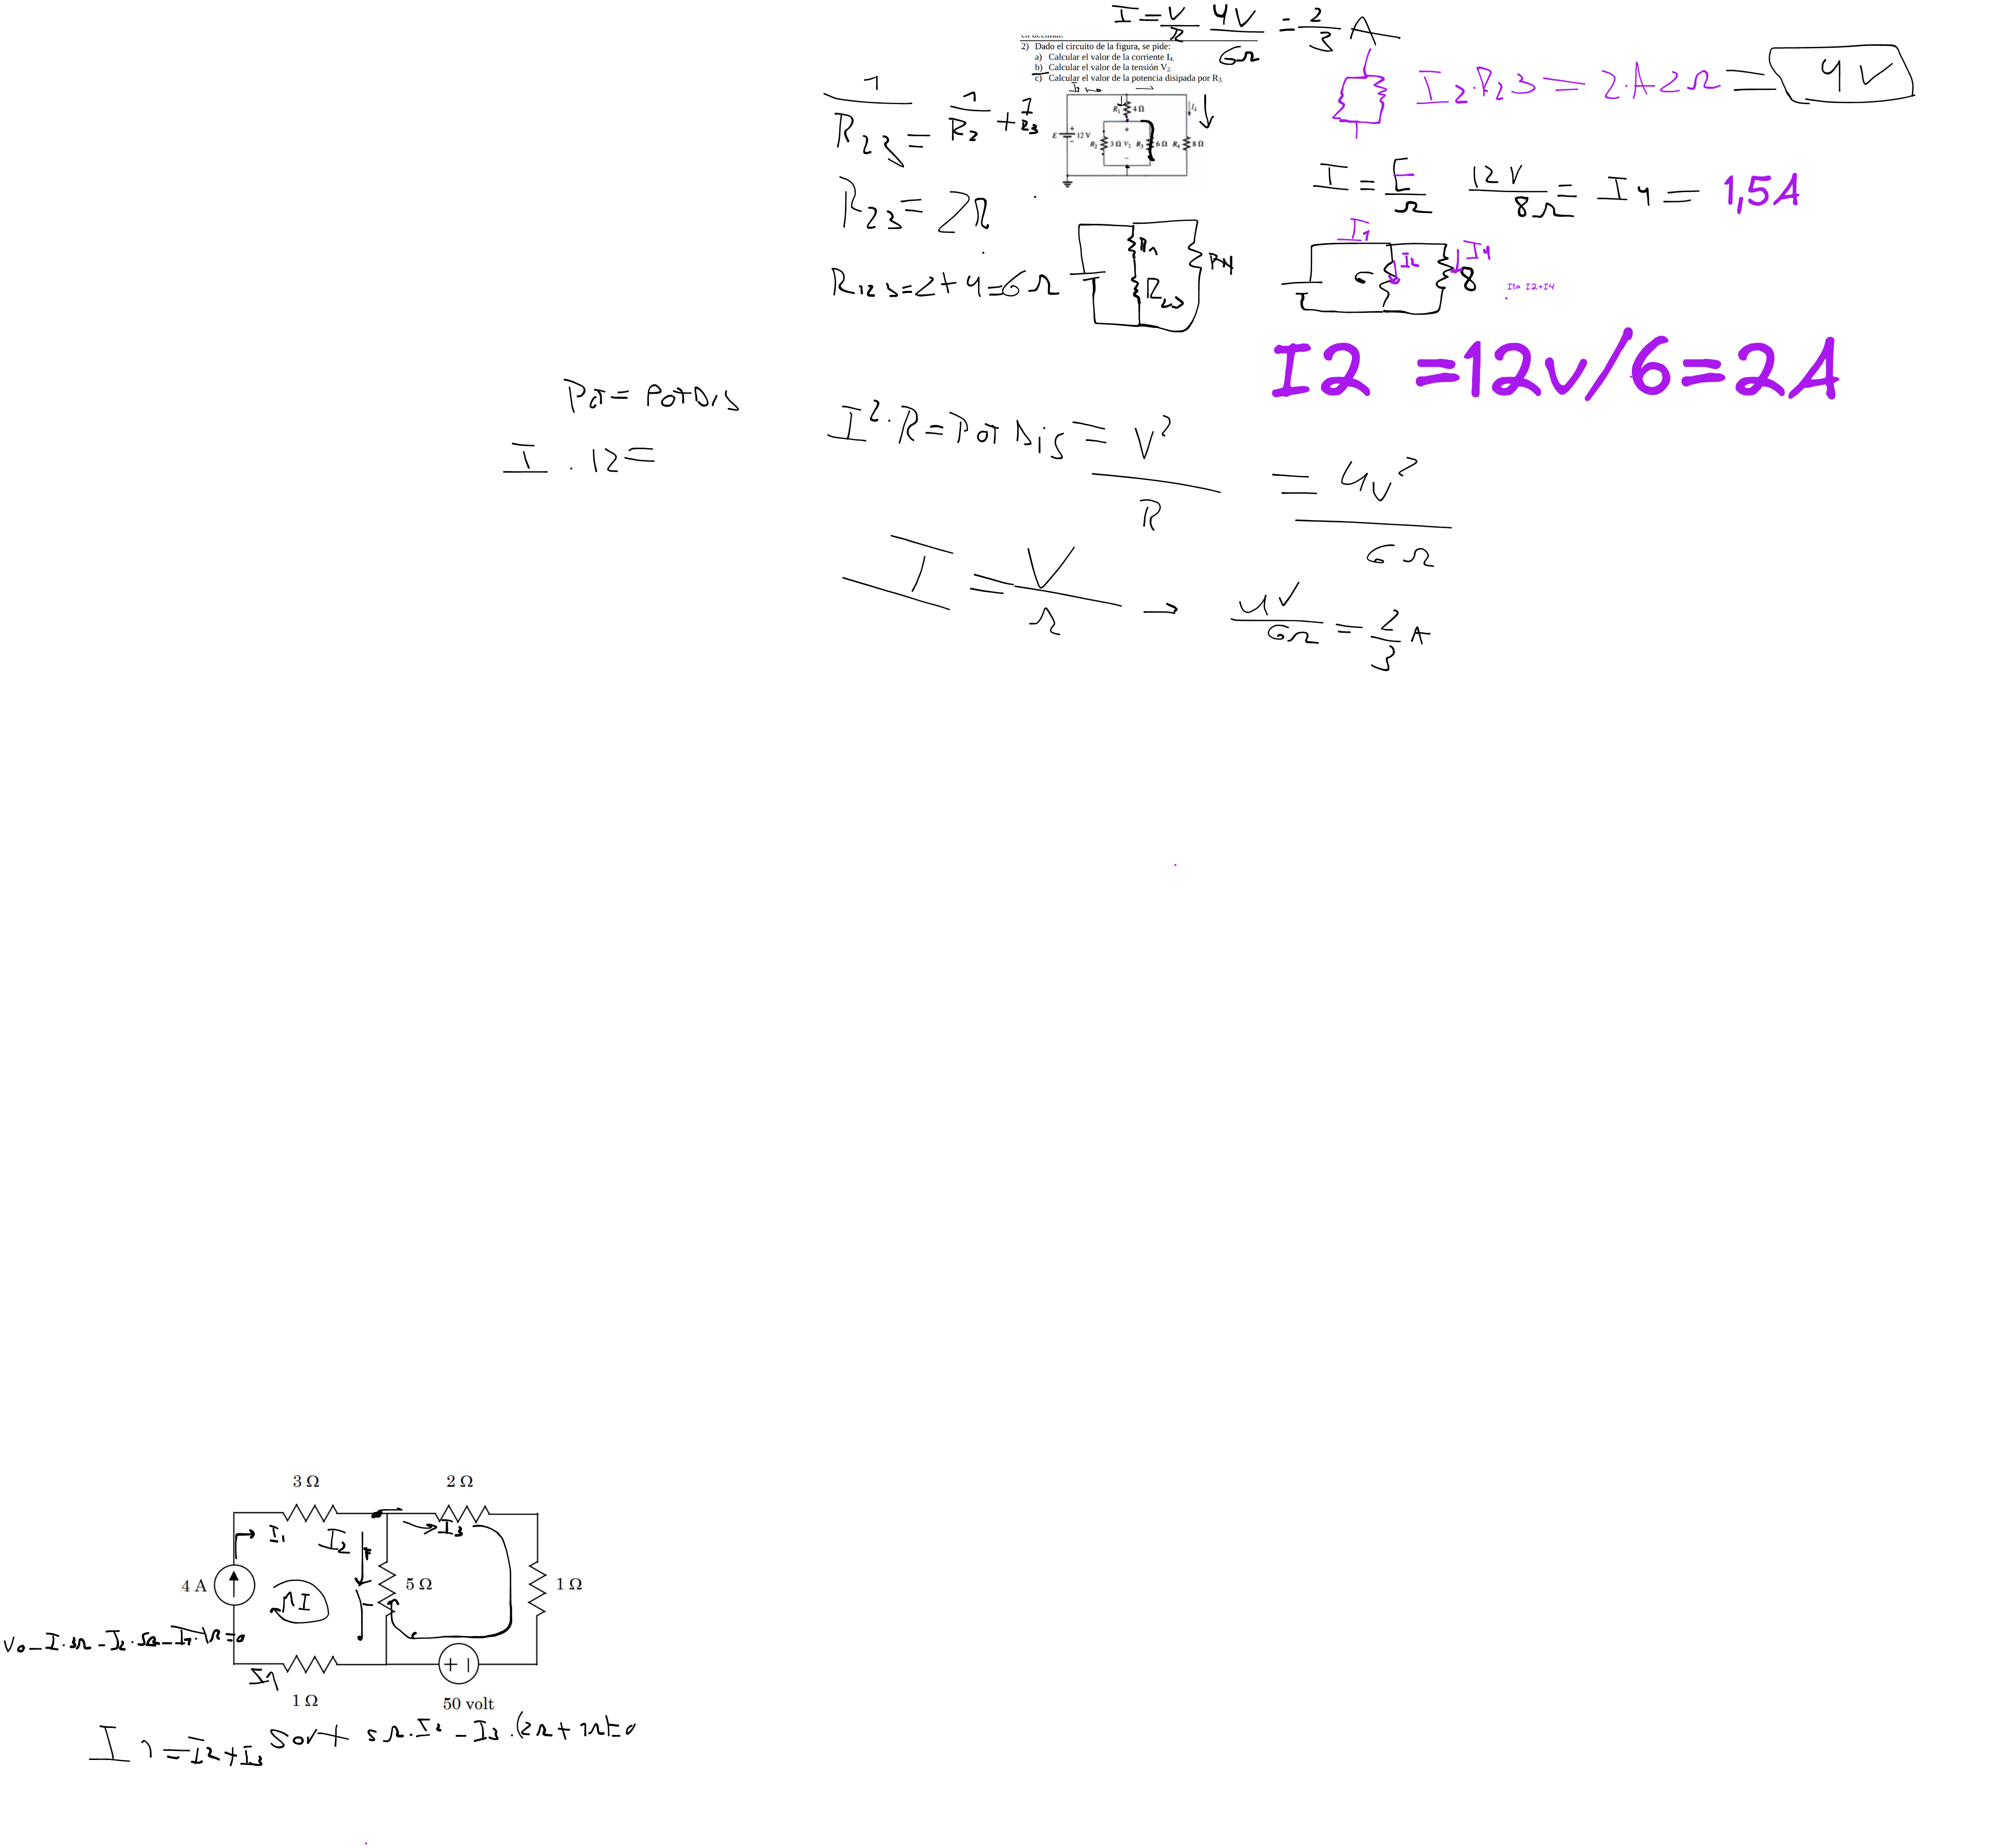 I = V/R 4V/6Ω = 2/3 A
2) Dado el circuito de la figura, se pide:
a) Calcular el valor de la corriente I₄.
b) Calcular el valor de la tensión V₂.
c) Calcular el valor de la potencia disipada por R₃.
I₂·R₂3 = 2·A2Ω = 4V
1/R₂₃ = 1/R₂ + 1/R₃
R₁ 4 Ω
I₄
E + 12 V −
R₂ 3 Ω + V₂ − R₃ 6 Ω R₄ 8 Ω
R₂₃ = 2Ω
I = E/Ω 12V/8Ω = I4 = 1,5A
R₁₂₃ = 2+4=6Ω
R1
R23
R4
I1
I2
I4
6
8
I1= I2+I4
I2 =12v/6=2A
Pot = PotDis
I . 12=
I²·R=Pot Dis = V²/R = 4V²/6Ω
I = V/Ω → 4V/6Ω = 2/3 A
3 Ω
2 Ω
I₁
I₂
I₃
4 A
5 Ω
1 Ω
V0 − I·3Ω − I₂·5Ω − I1·1Ω=0
I1
+ −
1 Ω
50 volt
I1 = I2 + I3
50V+ 5Ω·I2 − I3·(2Ω+1Ω)=0